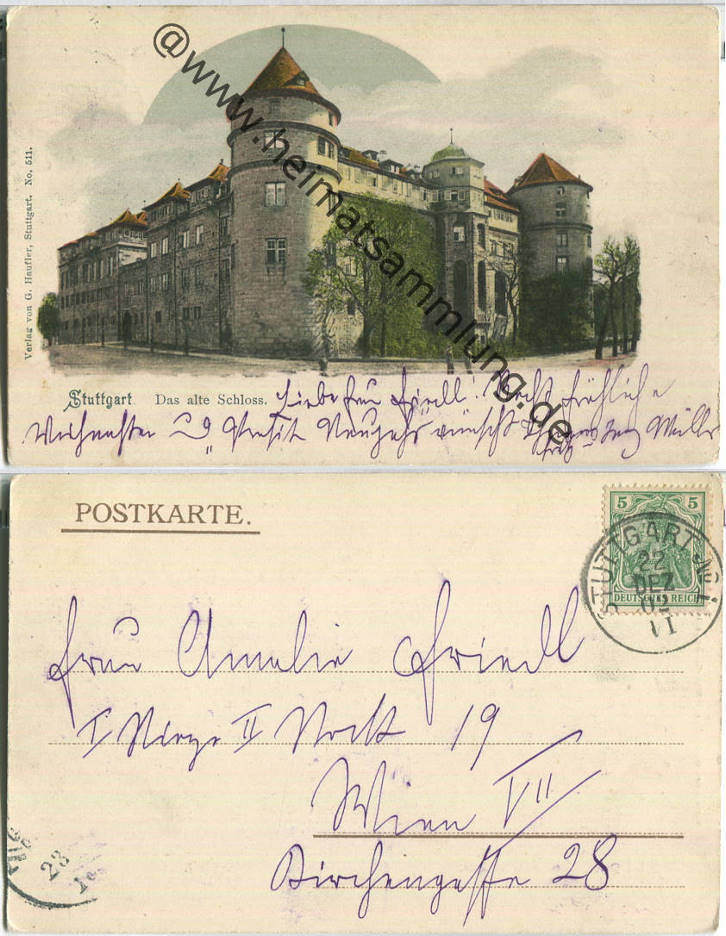 @www.heimatsammlung.de
Verlag von G. Hauffer, Stuttgart. No. 511.
Stuttgart. Das alte Schloss. Liebe Frau Friedl! Recht fröhliche
Weihnachten u. Prosit Neujahr wünscht Ihnen
POSTKARTE.
5 5
DEUTSCHES REICH
STUTTGART No. 1
22
DEZ
02
VI
Frau Amalie Friedl
I Stiege II Stock 19
Wien VII
Kirchengasse 28
23